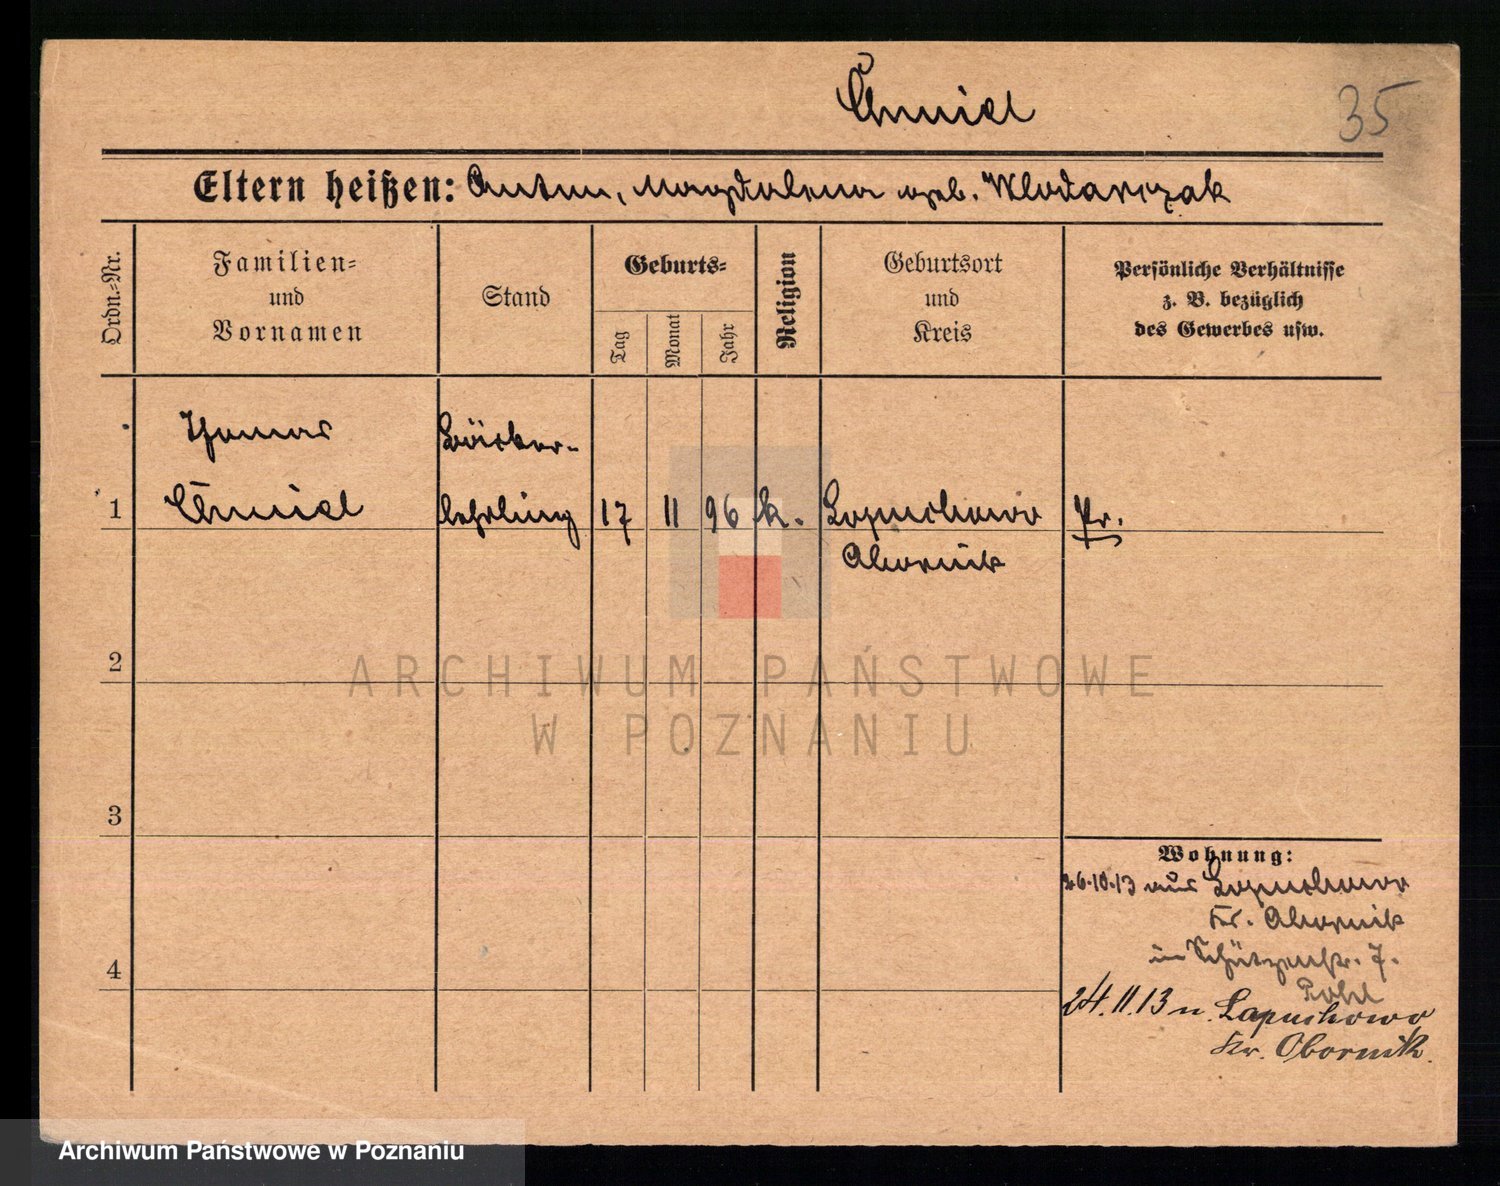 Chmiel
35
Eltern heißen: Anton, Magdalena geb. Wlodarczak
Ordn.-Nr.
Familien-
und
Vornamen
Stand
Geburts-
Tag
Monat
Jahr
Religion
Geburtsort
und
Kreis
Persönliche Verhältnisse
z. B. bezüglich
des Gewerbes usw.
Thomas
Bäcker-
1 Chmiel lehrling 17 11 96 k. Lopuchowo Pr.
Obornik
2
ARCHIWUM PAŃSTWOWE
W POZNANIU
3
Wohnung:
26.10.13 aus Lopuchowo
Kr. Obornik
in Schützenstr. 7.
Pohl
4
24.11.13 n. Lapuchowo
Kr. Obornik.
Archiwum Państwowe w Poznaniu